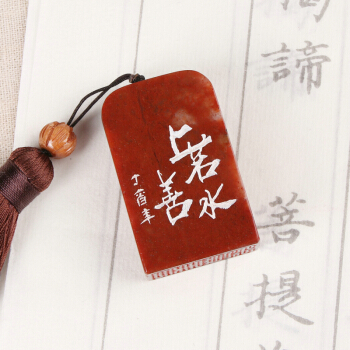 上善
若水
丁酉年
諦
菩提